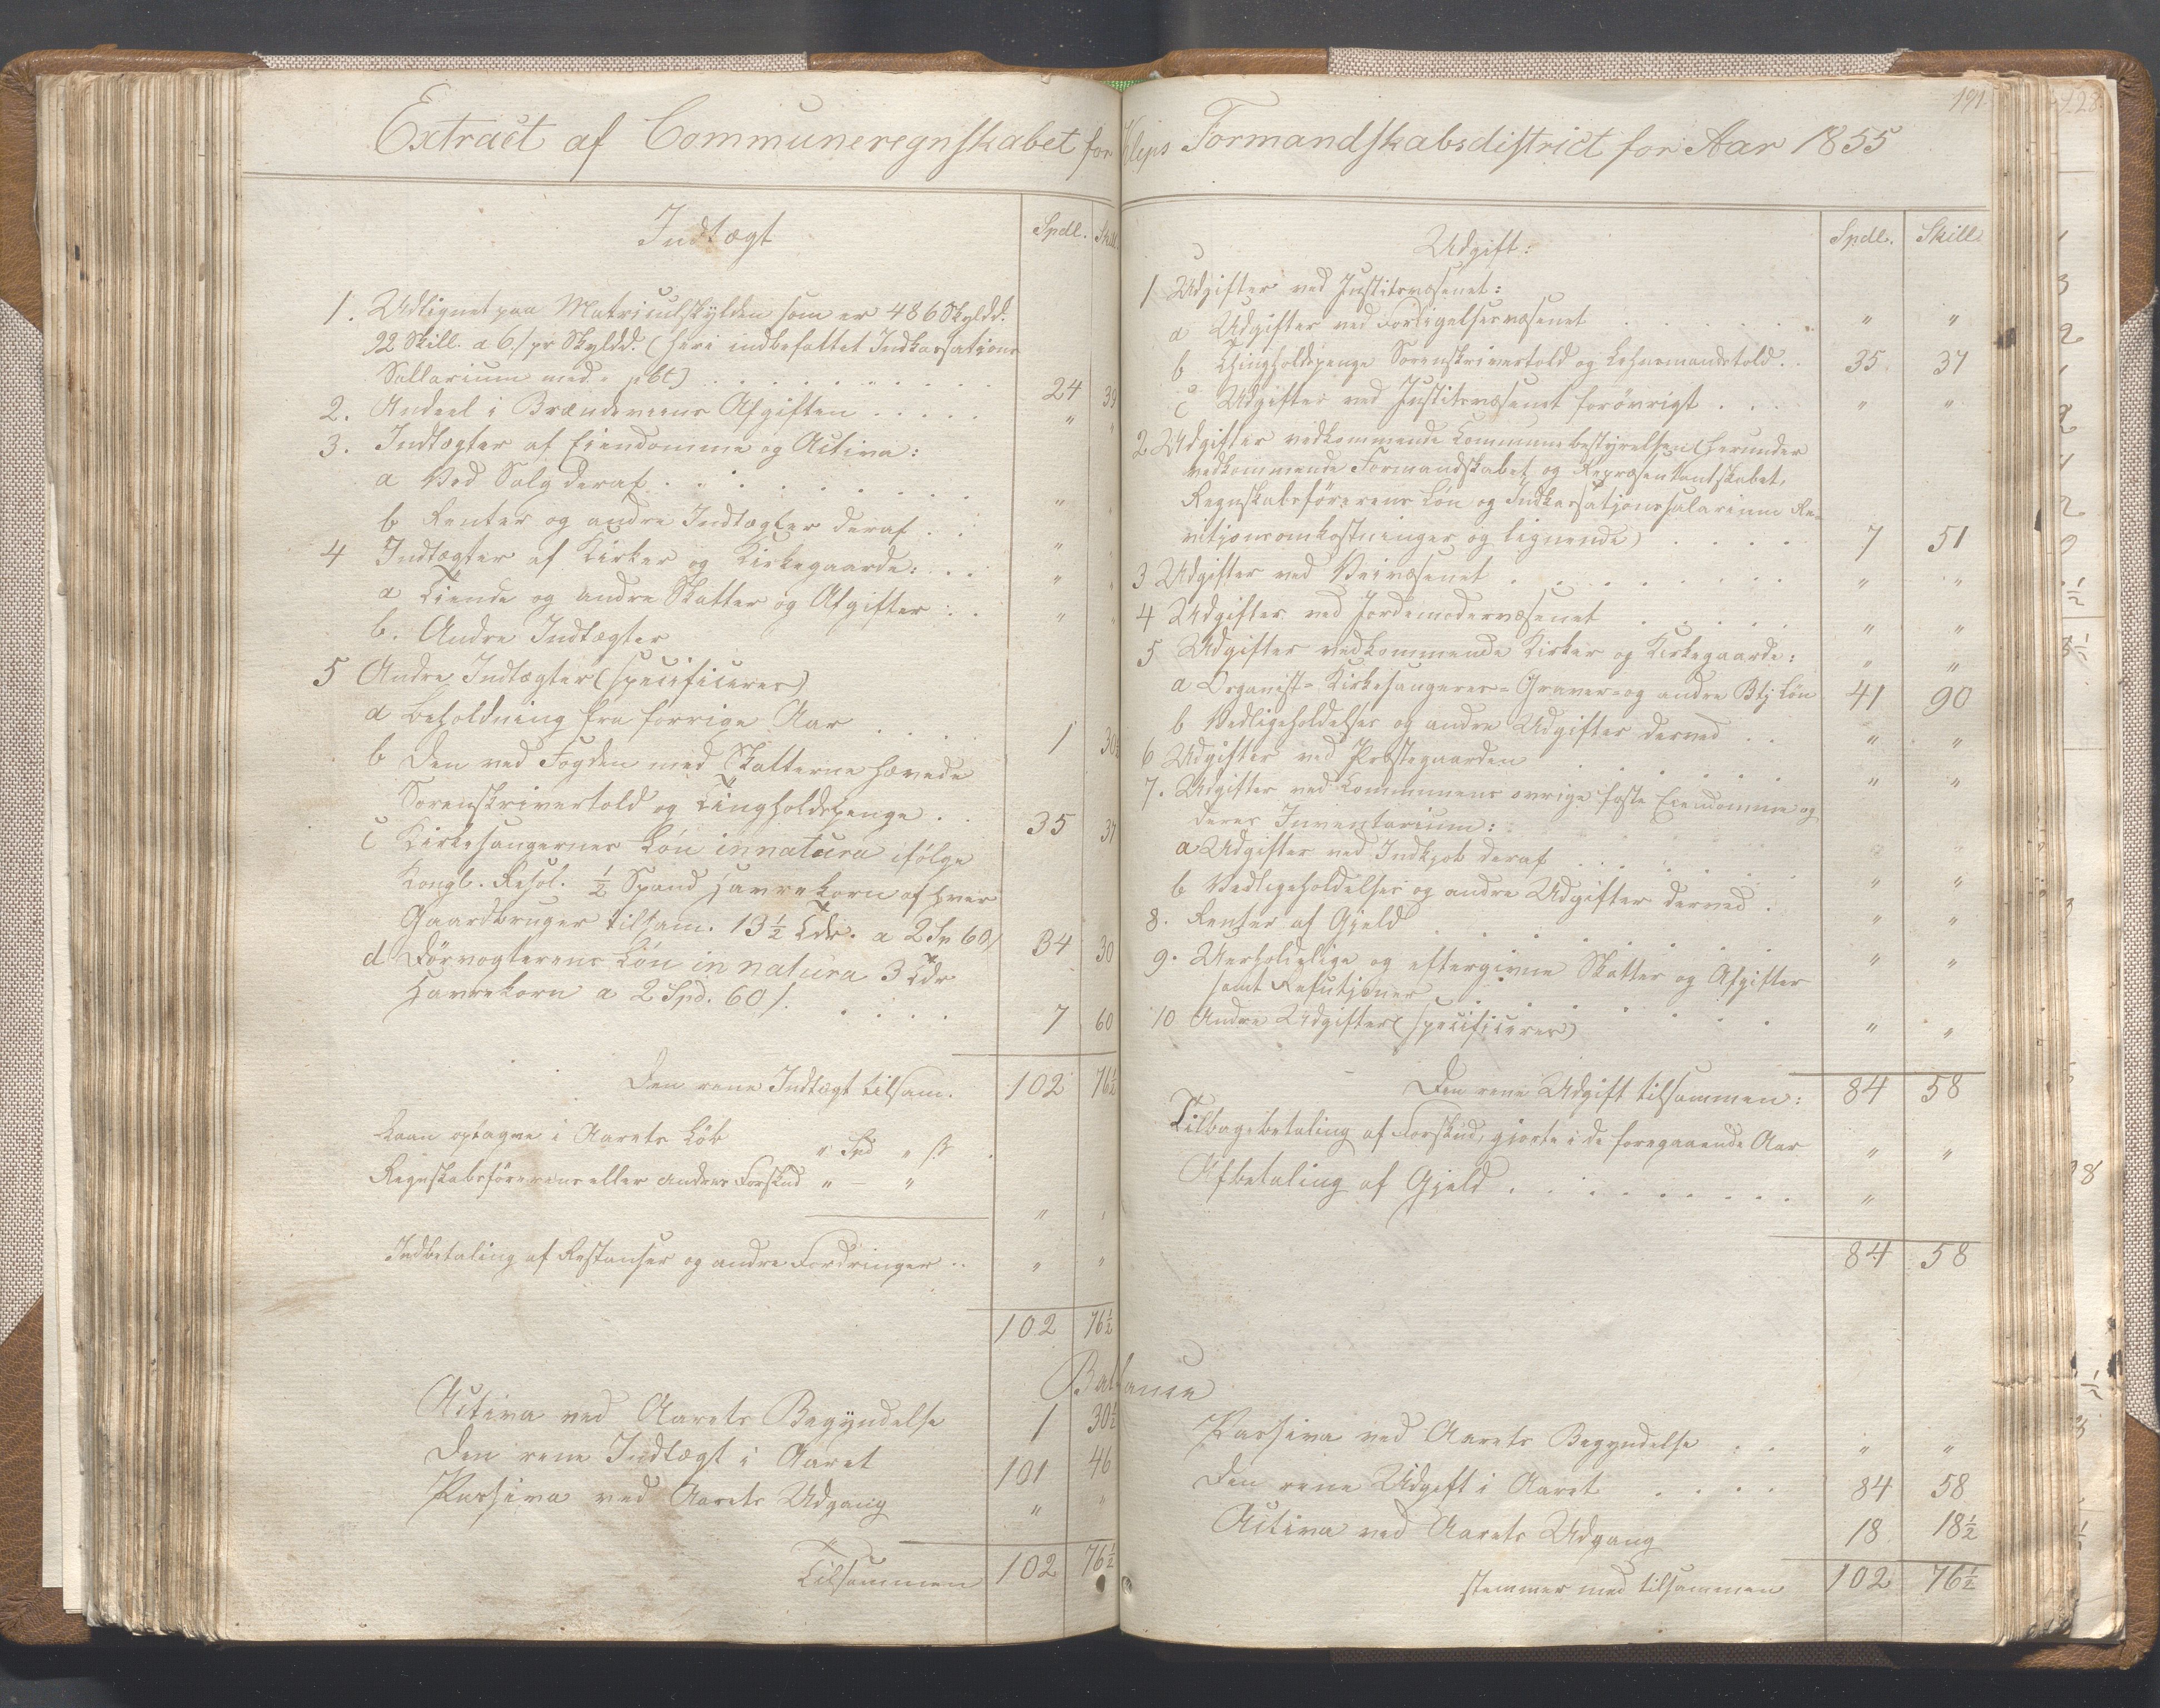 191.
Extract af Communeregnskabet for Kleps Formandskabsdistrict for Aar 1855
Indtægt Spdl. Skill.
1. Udlignet paa Matriculskylden som er 486 Skyldd.
92 Skill. a 6 s pr Skyldd. (heri indbefattet Indkassations
Sallarium med 24 39
2. Andeel i Brændeviens Afgiften . . . . . " "
3. Indtægter af Eiendomme og Activa:
a Ved Salg deraf . . . . . . . . . " "
b Renter og andre Indtægter deraf . . " "
4 Indtægter af Kirker og Kirkegaarde: . . " "
a Tiende og andre Skatter og Afgifter . . " "
b. Andre Indtægter
5 Andre Indtægter (specificeres)
a Beholdning fra forrige Aar . . . . 1 30½
b Den ved Fogden med Skatterne hævede
Sorenskrivertold og Tingholdspenge . . 35 37
c Kirkesangernes Løn in natura ifølge
Kongl. Resol. ½ Spand Havrekorn af hver
Gaardbruger tilsam. 13½ Tdr. a 2 Sp 60 s 34 30
d Dørvogterens Løn in natura 3 Tdr
Havrekorn a 2 Spd. 60 s. . . . . 7 60
Den rene Indtægt tilsam. 102 76½
Laan optagne i Aarets Løb " Spd " ß
Regnskabsførerens eller andres Forskud " — " " "
Indbetaling af Restanser og andre Fordringer .. " "
102 76½
Ballance
Activa ved Aarets Begyndelse 1 30½
Den rene Indtægt i Aaret 101 46
Passiva ved Aarets Udgang " "
Tilsammen 102 76½
Udgift: Spdl. Skill.
1 Udgifter ved Justitsvæsenet:
a Udgifter ved Forligelsesvæsenet . . . . . . " "
b Thingholdspenge Sorenskrivertold og Lehnsmandstold . . 35 37
c Udgifter ved Justitsvæsenet forøvrigt . . . " "
2 Udgifter vedkommende Communebestyrelsen (herunder
vedkommende Formandskabet og Repræsentantskabet,
Regnskabsførerens Løn og Indkassationssalarium Re-
vitjonsomkostninger og lignende) . . . . 7 51
3 Udgifter ved Veivæsenet . . . . . . . . " "
4 Udgifter ved Jordemodervæsenet . . . . . " "
5 Udgifter vedkommende Kirker og Kirkegaarde: " "
a Organist- Kirkesangeres- Graver- og andre Btj Løn 41 90
b Vedligeholdelse og andre Udgifter derved . . " "
6 Udgifter ved Præstegaarden . . . . . . " "
7. Udgifter ved Communens øvrige faste Eiendomme og
deres Inventarium:
a Udgifter ved Indkjøb deraf . . . . . . " "
b Vedligeholdelse og andre Udgifter derved . " "
8. Renter af Gjeld . . . . . . . . " "
9. Uerholdelige og eftergivne Skatter og Afgifter
samt Refutjoner . . . . . . .
10 Andre Udgifter (specificeres) " "
Den rene Udgift tilsammen: 84 58
Tilbagebetaling af Forskud, gjorte i de foregaaende Aar " "
Afbetaling af Gjeld . . . . . . . . . "
84 58
Passiva ved Aarets Begyndelse . . " "
Den rene Udgift i Aaret . . . . 84 58
Activa ved Aarets Udgang 18 18½
stemmer med tilsammen 102 76½